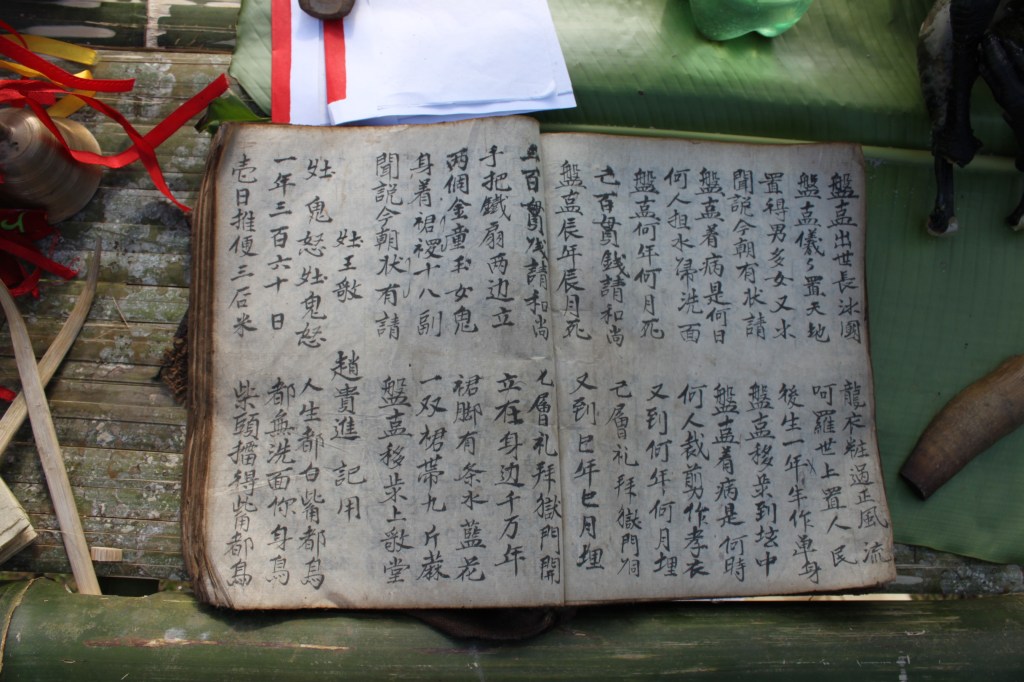 盤古出世長沙國 龍衣粧過正風流
盤古儀々置天地 呵羅世上置人民
置得男多女又少 後生一年半作單身
聞說今朝有狀請 盤古移来到垓中
盤古着病是何日 盤古着病是何時
何人担水帚洗面 何人裁剪作孝衣
盤古何年何月死 又到何年何月埋
百貫錢請和尚 層礼拜獄門
盤古辰年辰月死 又到巳年巳月埋
五百貫錢請和尚 七層礼拜獄門開
手把鐵扇两边立 立在身边千万年
两個金童玉女鬼 裙脚有条水藍花
身着裙十八副 一双裙帶九斤蔴
聞説今朝状有請 盤古移来上歌堂
妵王歌 趙貴進 記用
妵鬼怒妵鬼怒 人生都白觜都烏
一年三百六十日 都無洗面你身烏
壱日推便三石米 柴頭擂得觜都烏